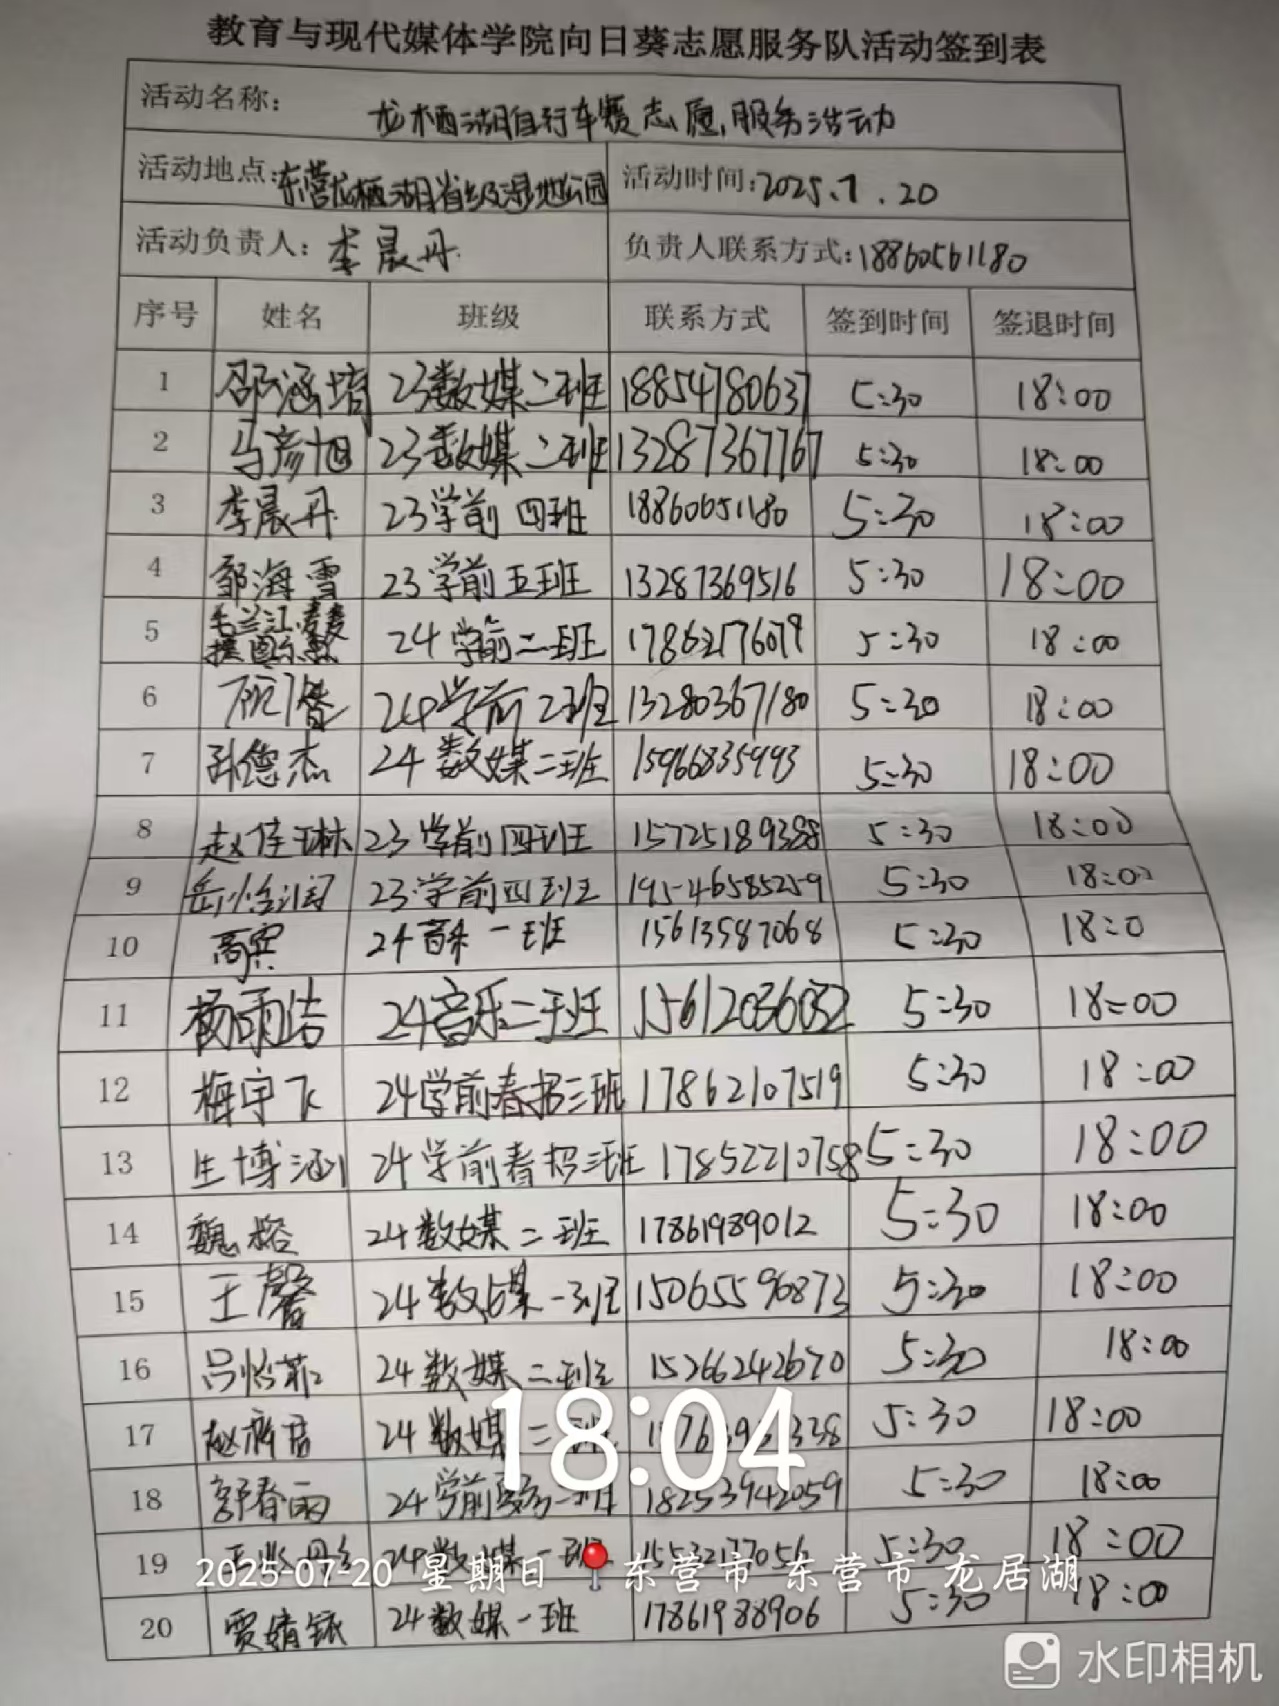 教育与现代媒体学院向日葵志愿服务队活动签到表
活动名称: 龙栖湖自行车赛志愿服务活动
活动地点: 东营龙栖湖省级湿地公园 活动时间: 2025.7.20
活动负责人: 李晨丹 负责人联系方式: 18860561180
序号 姓名 班级 联系方式 签到时间 签退时间
1 邵涵堉 23数媒二班 18854780637 5:30 18:00
2 马彦旭 23数媒二班 13287367767 5:30 18:00
3 李晨丹 23学前四班 18860651180 5:30 18:00
4 邹海雪 23学前五班 13287369516 5:30 18:00
5 24学前二班 17862176079 5:30 18:00
6 24学前2班 13280367180 5:30 18:00
7 孙德杰 24数媒二班 15966835993 5:30 18:00
8 赵佳琳 23学前四班 15725189388 5:30 18:00
9 岳怡润 23学前四班 19546585259 5:30 18:00
10 24音乐一班 15613587068 5:30 18:0
11 杨雨洁 24音乐二班 15612036032 5:30 18:00
12 梅宇飞 24学前春招三班 17862107519 5:30 18:00
13 生博涵 24学前春招三班 17852210758 5:30 18:00
14 魏榕 24数媒二班 17861989012 5:30 18:00
15 王馨 24数媒一班 15065596873 5:30 18:00
16 吕怡菲 24数媒二班 15266242670 5:30 18:00
17 24数媒二班 5:30 18:00
18 郭春雨 24学前 18253942059 5:30 18:00
19 24数媒一班 15532177056 5:30 18:00
20 贾婧铱 24数媒一班 17861988906 5:30 18:00
18:04
2025-07-20 星期日 东营市 东营市 龙居湖
水印相机